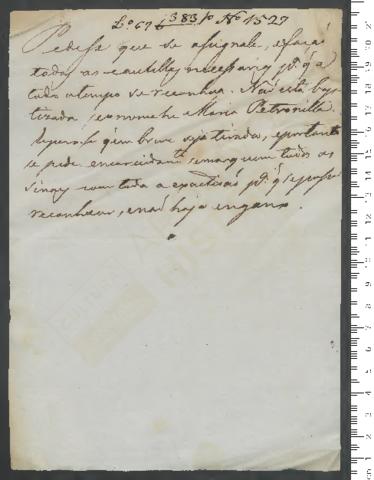 L.º 67 f 383 N.º 1527
Pedesse que se asignale, efaçaõ
todas as cautellas necessarias p.ª q a
todo otempo se reconheça. Naõ está bap
tizada, eonome he Maria Petronilla
supoemse q em breve seja tirada, eportanto
se pede encarecidam.te semarquem todos os
sinaes com toda a exactidaõ p.ª q sepossa
reconhecer, enaõ haja engano.